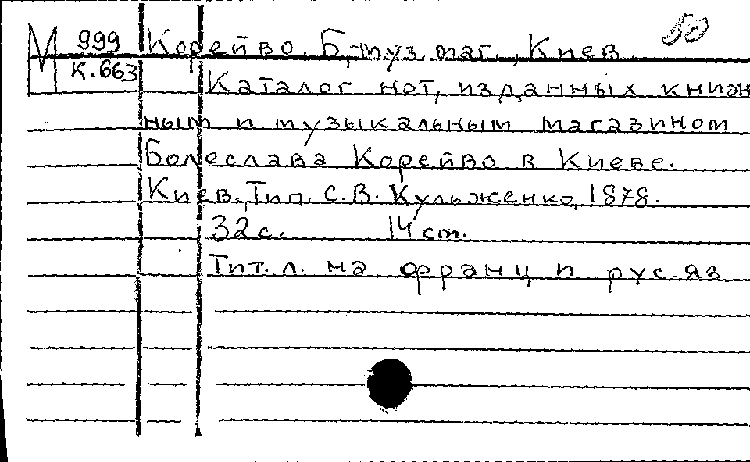 М 999 Корейво, Б., муз. маг., Киев 50
К.663 Каталог нот, изданных книж
ным и музыкальным магазином
Болеслава Корейво в Киеве.
Киев, Тип. С.В. Кульженко, 1878.
32 с. 14 см.
Тит. л. на франц и рус. яз